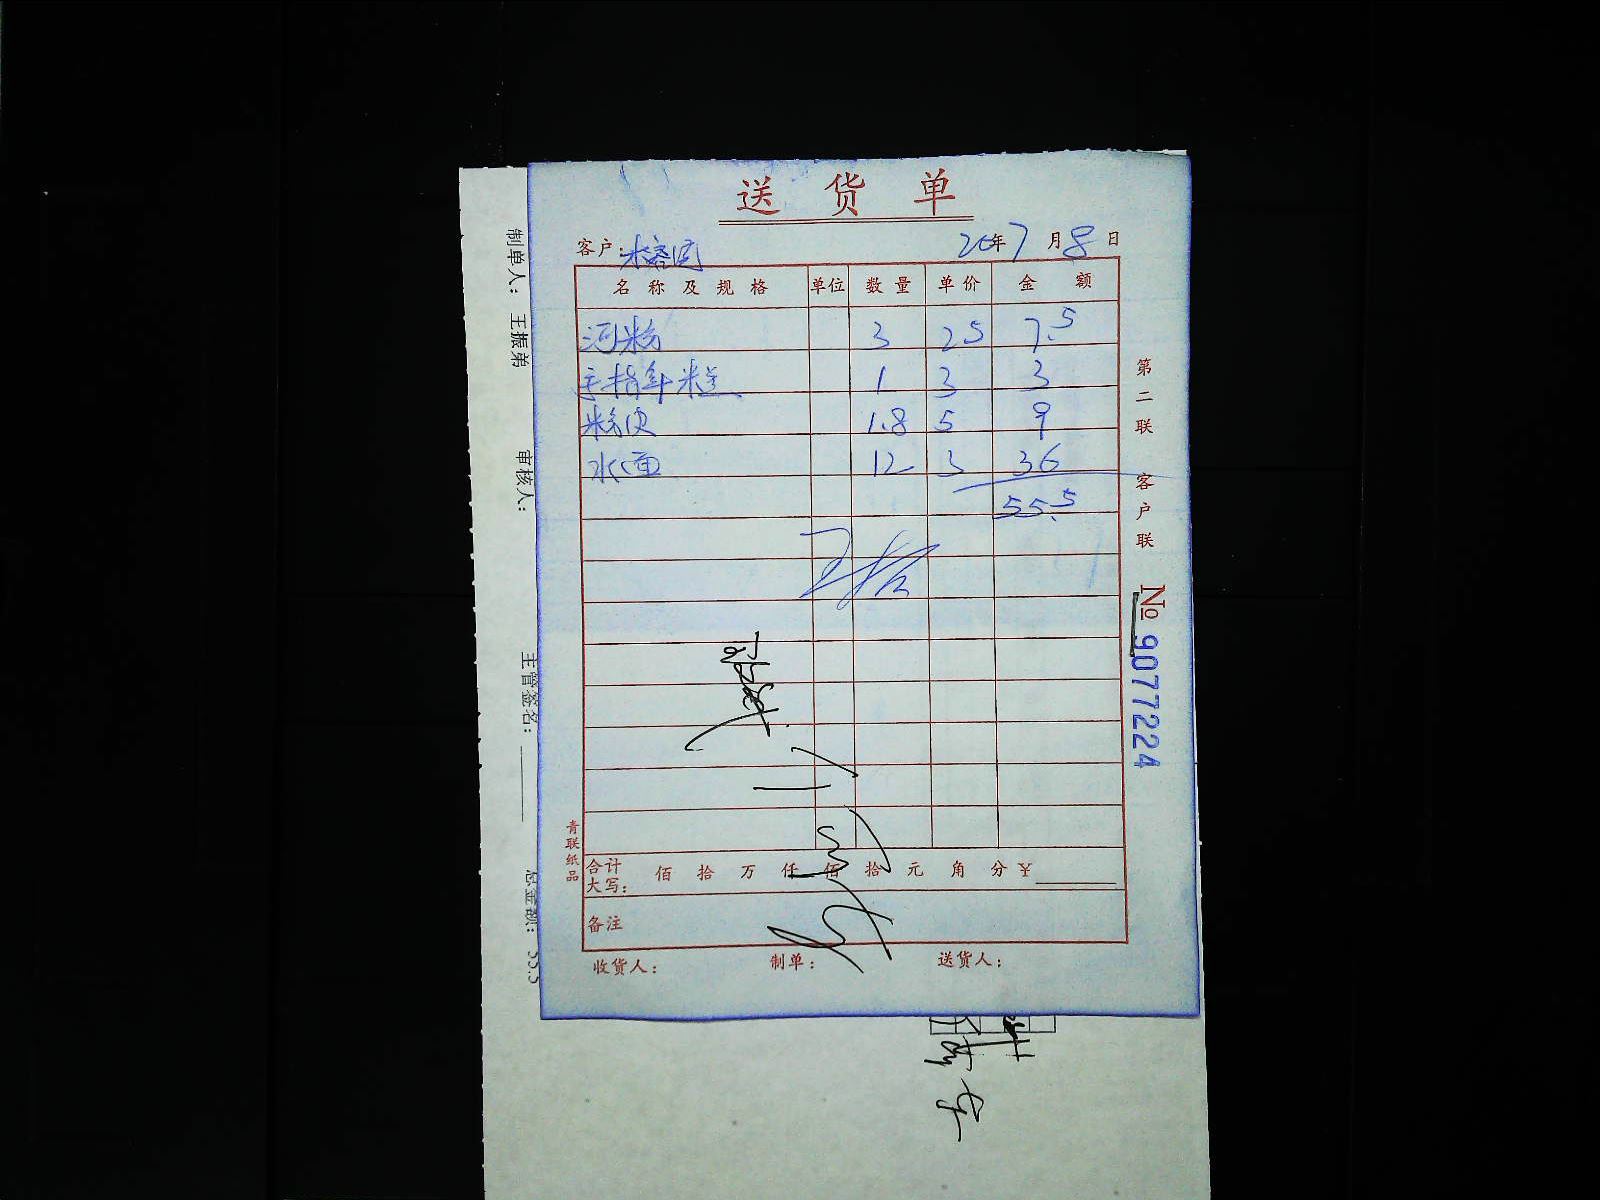 送货单
客户:水榕园 20年7月8日
名称及规格 单位 数量 单价 金额
河粉 3 25 7.5
1 3 3
粉皮 1.8 5 9
水面 12 3 36
55.5
合计大写: 佰 拾 万 仟 佰 拾 元 角 分 ¥
备注
收货人: 制单: 送货人:
第二联 客户联
No 9077224
青联纸品
制单人: 王振弟 审核人: 主管签名: 总金额: 55.5